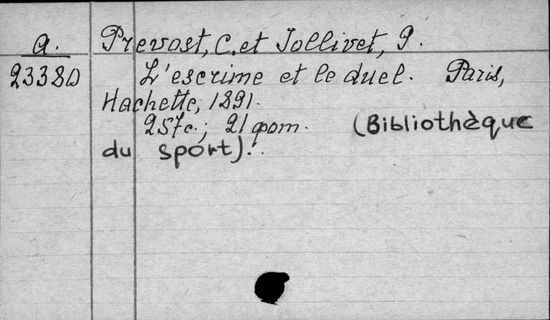 a. Prevost, C. et Jollivet, G.
23380 L'escrime et le duel. Paris,
Hachette, 1891.
257 c.; 21 фот. (Bibliothèque
du sport).